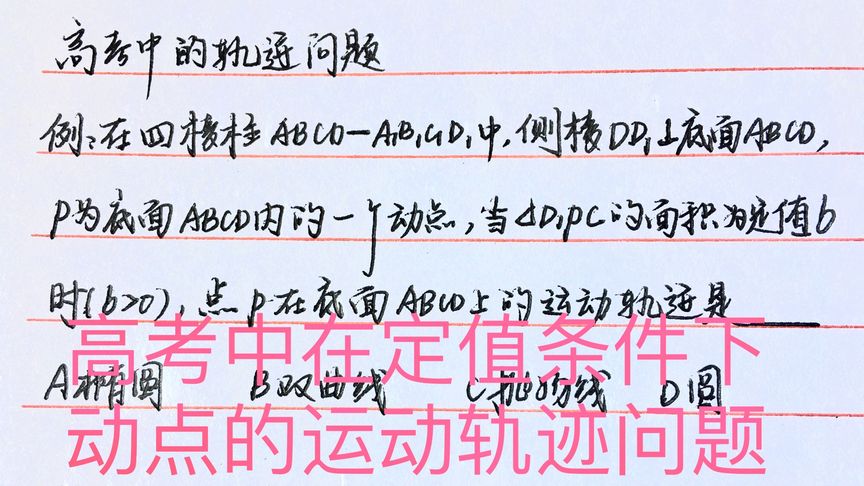 高考中的轨迹问题
例:在四棱柱ABCD-A₁B₁C₁D₁中,侧棱DD₁⊥底面ABCD,
P为底面ABCD内的一个动点,当△D₁PC的面积为定值b
时(b>0),点P在底面ABCD上的运动轨迹是____
A椭圆 B双曲线 C抛物线 D圆
高考中在定值条件下
动点的运动轨迹问题